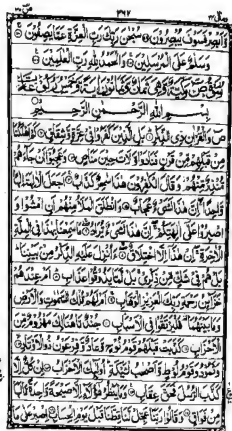 وَأَبْصِرْ فَسَوْفَ يُبْصِرُونَ سُبْحٰنَ رَبِّكَ رَبِّ الْعِزَّةِ عَمَّا يَصِفُونَ
وَسَلٰمٌ عَلَى الْمُرْسَلِينَ وَالْحَمْدُ لِلّٰهِ رَبِّ الْعٰلَمِينَ
بِسْمِ اللّٰهِ الرَّحْمٰنِ الرَّحِيمِ
صٓ وَالْقُرْاٰنِ ذِي الذِّكْرِ بَلِ الَّذِينَ كَفَرُوا فِي عِزَّةٍ وَّشِقَاقٍ كَمْ أَهْلَكْنَا
مِنْ قَبْلِهِمْ مِّنْ قَرْنٍ فَنَادَوْا وَّلَاتَ حِينَ مَنَاصٍ وَعَجِبُوا أَنْ جَاءَهُمْ
مُّنْذِرٌ مِّنْهُمْ وَقَالَ الْكٰفِرُونَ هٰذَا سٰحِرٌ كَذَّابٌ أَجَعَلَ الْاٰلِهَةَ إِلٰهًا
وَّاحِدًا إِنَّ هٰذَا لَشَيْءٌ عُجَابٌ وَانْطَلَقَ الْمَلَأُ مِنْهُمْ أَنِ امْشُوا وَ
اصْبِرُوا عَلٰى اٰلِهَتِكُمْ إِنَّ هٰذَا لَشَيْءٌ يُّرَادُ مَا سَمِعْنَا بِهٰذَا فِي الْمِلَّةِ
الْاٰخِرَةِ إِنْ هٰذَا إِلَّا اخْتِلَاقٌ ءَأُنْزِلَ عَلَيْهِ الذِّكْرُ مِنْ بَيْنِنَا
بَلْ هُمْ فِي شَكٍّ مِّنْ ذِكْرِي بَلْ لَّمَّا يَذُوقُوا عَذَابِ أَمْ عِنْدَهُمْ
خَزَائِنُ رَحْمَةِ رَبِّكَ الْعَزِيزِ الْوَهَّابِ أَمْ لَهُمْ مُّلْكُ السَّمٰوٰتِ وَالْأَرْضِ
وَمَا بَيْنَهُمَا فَلْيَرْتَقُوا فِي الْأَسْبَابِ جُنْدٌ مَّا هُنَالِكَ مَهْزُومٌ مِّنَ
الْأَحْزَابِ كَذَّبَتْ قَبْلَهُمْ قَوْمُ نُوحٍ وَّعَادٌ وَّفِرْعَوْنُ ذُو الْأَوْتَادِ
وَثَمُودُ وَقَوْمُ لُوطٍ وَّأَصْحٰبُ لْئَيْكَةِ أُولٰئِكَ الْأَحْزَابُ إِنْ كُلٌّ إِلَّا
كَذَّبَ الرُّسُلَ فَحَقَّ عِقَابِ وَمَا يَنْظُرُ هٰؤُلَاءِ إِلَّا صَيْحَةً وَّاحِدَةً مَّا لَهَا
مِنْ فَوَاقٍ وَقَالُوا رَبَّنَا عَجِّلْ لَّنَا قِطَّنَا قَبْلَ يَوْمِ الْحِسَابِ اصْبِرْ عَلٰى مَا